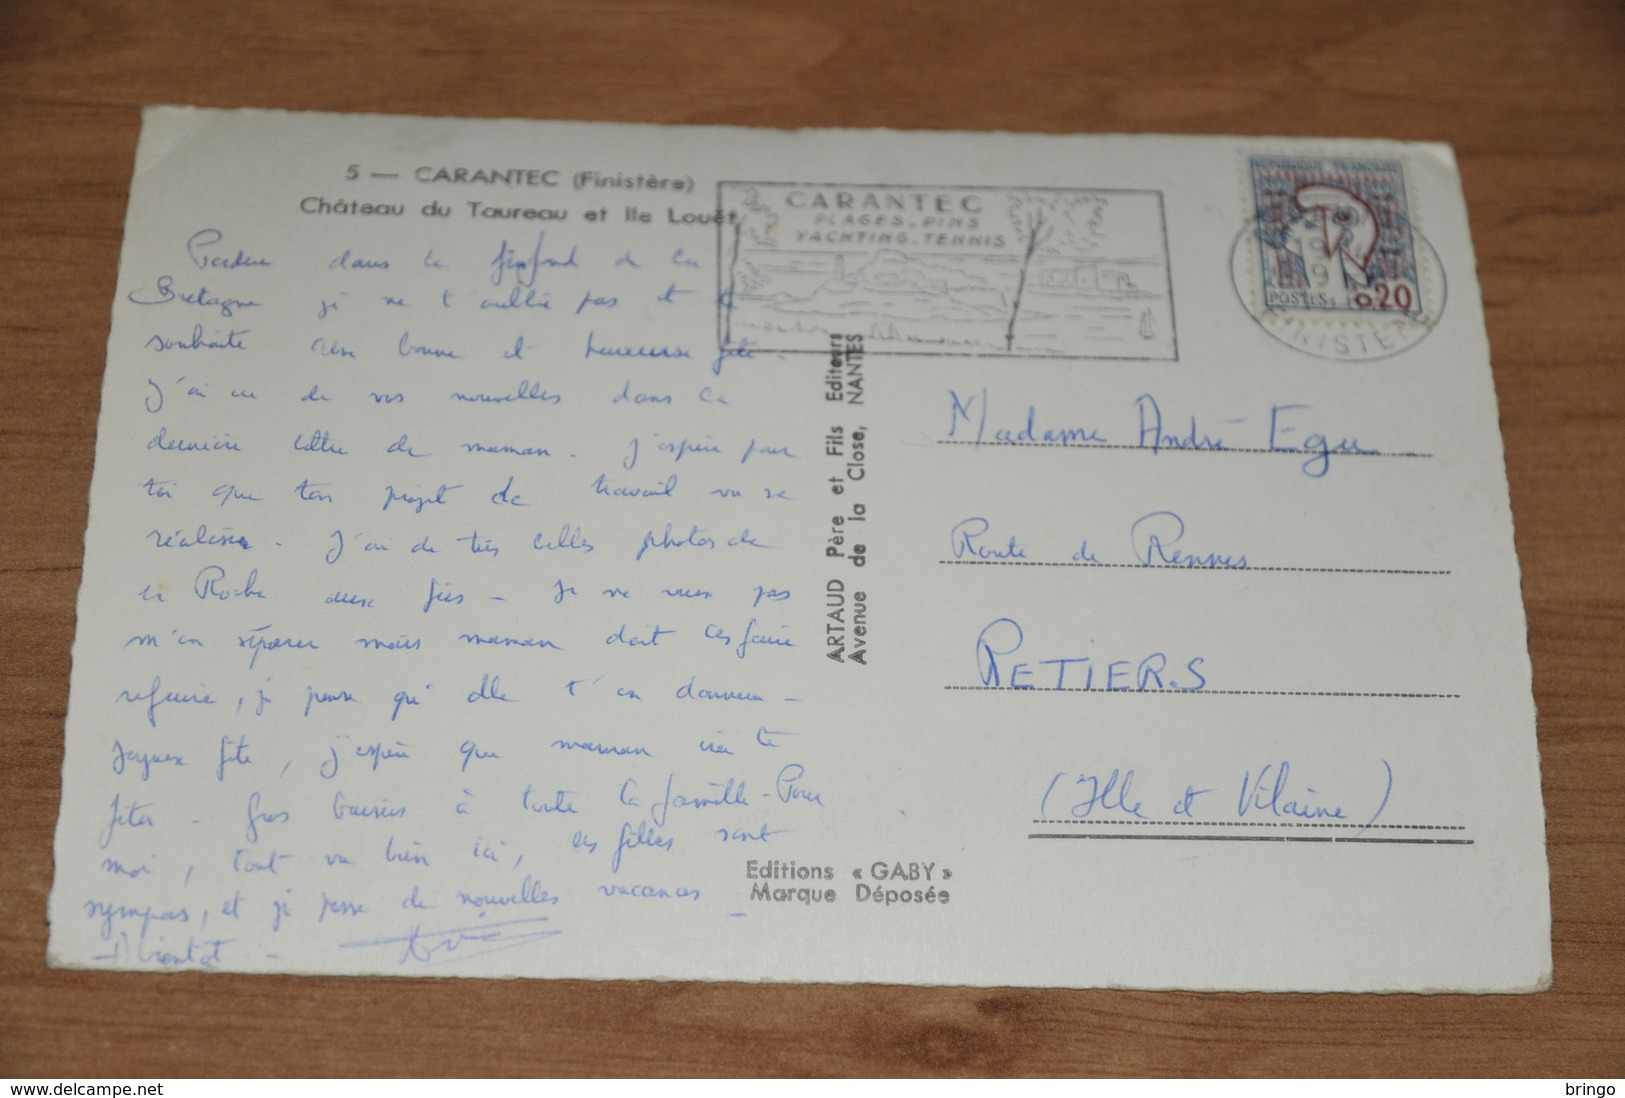 5 — CARANTEC (Finistère)
Château du Taureau et Ile Louët
CARANTEC
PLAGES - PINS
YACHTING - TENNIS
REPUBLIQUE FRANÇAISE
POSTES
0,20
19
9
FINISTERE
Perdue dans le fin fond de la
Bretagne je ne t'oublie pas et te
souhaite une bonne et heureuse fête -
J'ai eu de vos nouvelles dans la
dernière lettre de maman. J'espère pour
toi que ton projet de travail va se
réaliser - J'ai de très belles photos de
la Roche aux fées - Je ne veux pas
m'en séparer mais maman doit les faire
refaire, je pense qu'elle t'en donnera -
Joyeuse fête, j'espère que maman ira te
fêter - Gros baisers à toute la famille - Pour
moi, tout va bien ici, les filles sont
sympas, et je passe de nouvelles vacances -
A bientôt -
ARTAUD Père et Fils Editeurs
Avenue de la Close, NANTES
Madame André Egu
Route de Rennes
RETIERS
(Ille et Vilaine)
Editions « GABY »
Marque Déposée
delcampe.net
bringo